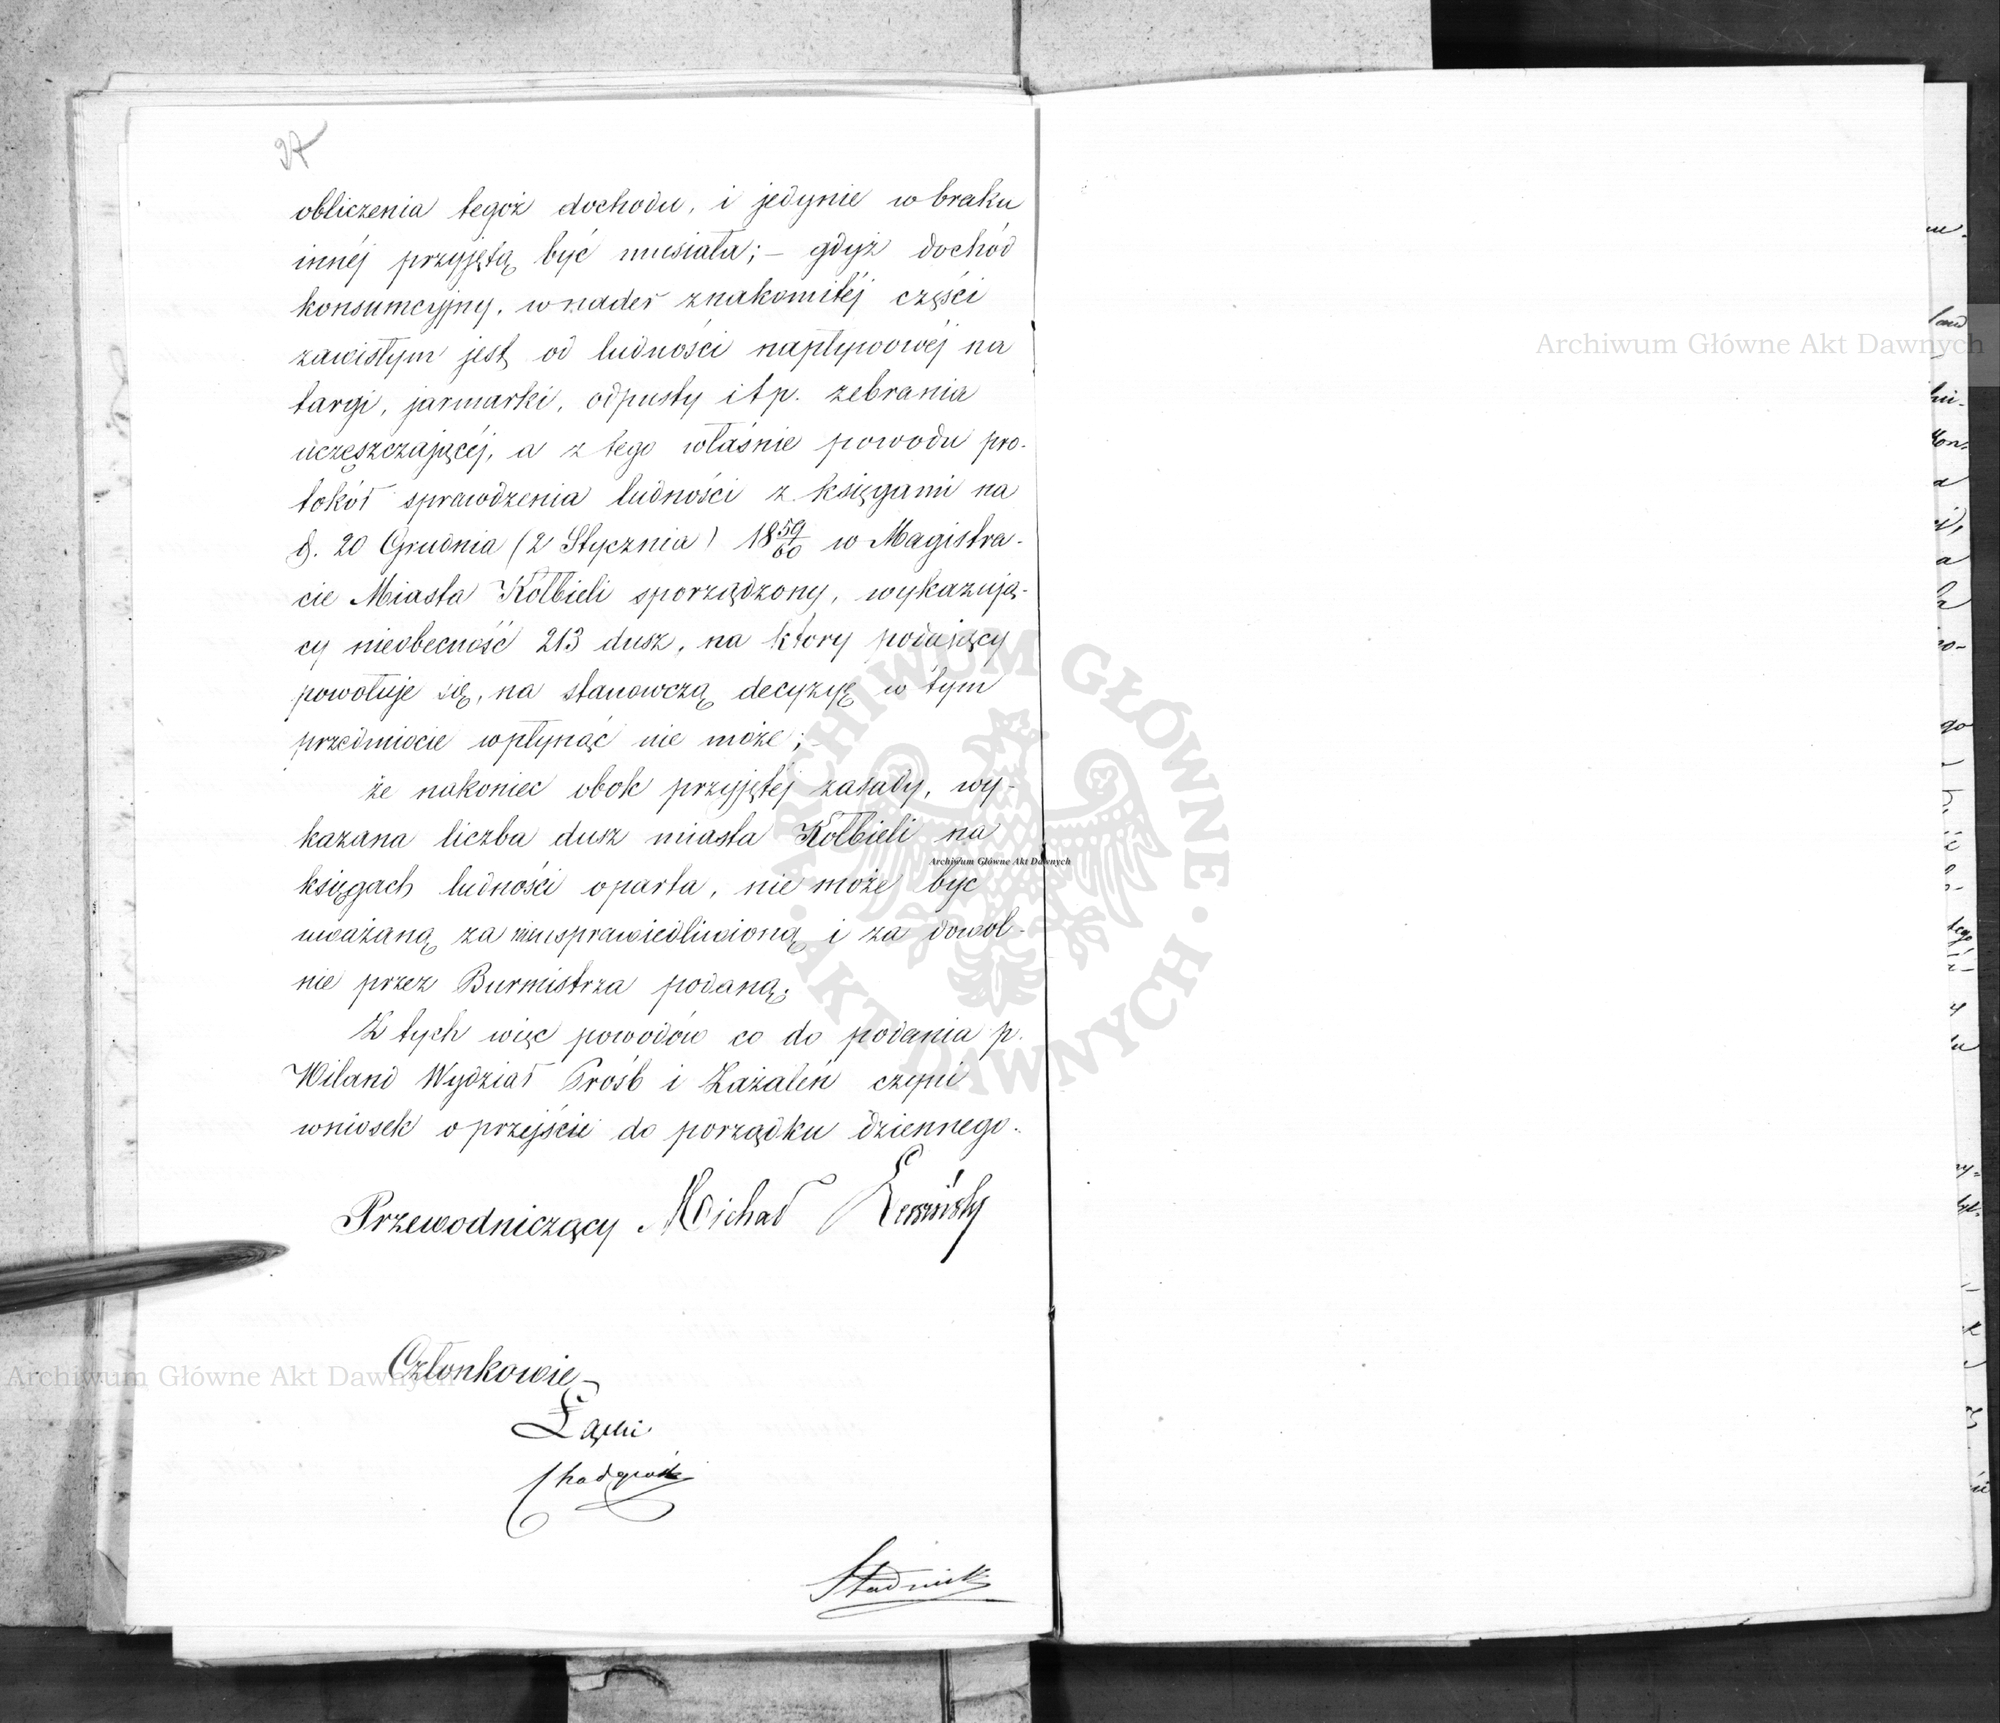 27
obliczenia tegoż dochodu, i jedynie w braku
innéj przyjętą być musiała; – gdyż dochód
konsumcyjny, w nader znakomitéj części
zawisłym jest od ludności napływowéj na
targi, jarmarki, odpusty itp. zebrania
uczęszczającéj, a z tego właśnie powodu pro-
tokół sprawdzenia ludności z księgami na
d. 20 Grudnia (2 Stycznia) 1859/60 w Magistra-
cie Miasta Kołbieli sporządzony, wykazują-
cy nieobecność 213 dusz, na ktory podający
powołuje się, na stanowczą decyzyę w tym
przedmiocie wpłynąć nie może; –
że nakoniec obok przyjętéj zasady, wy-
kazana liczba dusz miasta Kołbieli na
księgach ludności oparta, nie może być
uważaną za nieusprawiedliwioną i za dowol-
nie przez Burmistrza podaną;
Z tych więc powodów co do podania p.
Wiland Wydział Próśb i Zażaleń czyni
wniosek o przejście do porządku dziennego.
Przewodniczący Michał
Członkowie
Łącki
Stadnicki
Archiwum Główne Akt Dawnych
Archiwum Główne Akt Dawnych
Archiwum Główne Akt Dawnych
ARCHIWUM GŁÓWNE AKT DAWNYCH